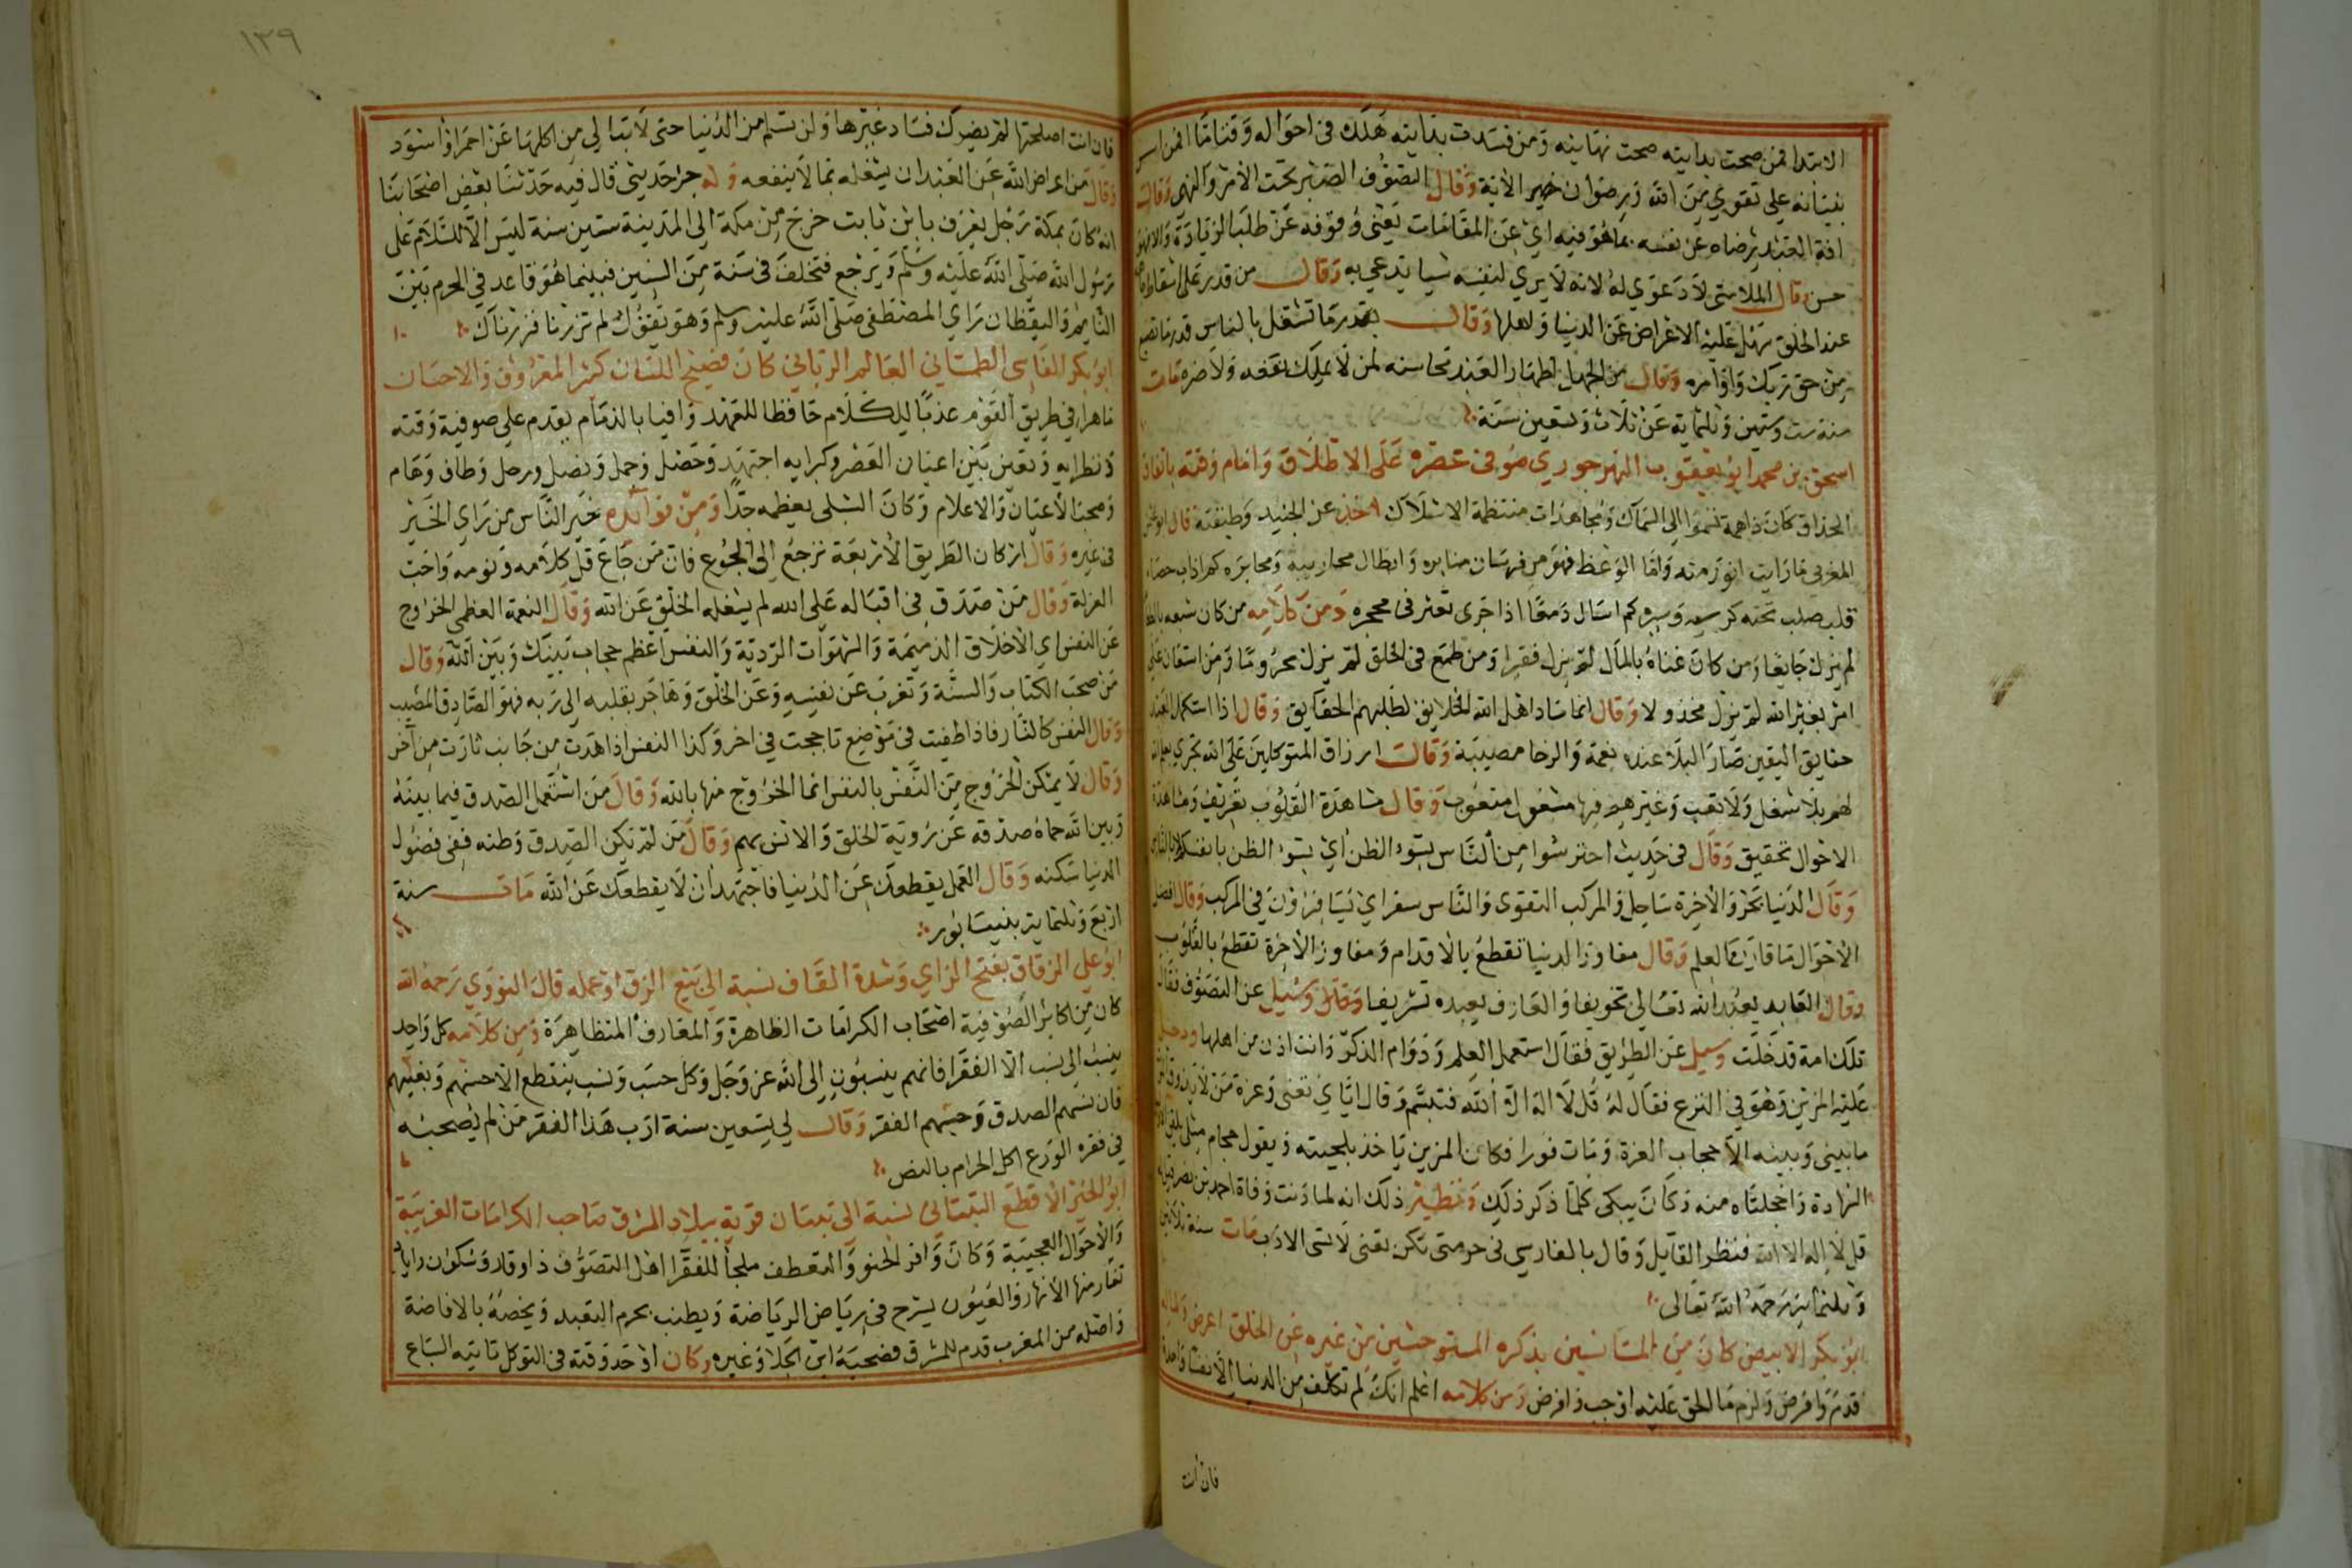 الابتدا فمن صحت بدايته صحت نهايته ومن فسدت بدايته هلك في احواله وقتاما افمن اسس
بنيانه علي تقوي من الله ورضوان خير الاية وقال التصوف الصبر تحت الامر والنهي وقال
افة العبد رضاه عن نفسه بما هو فيه اي عن المقامات يعني وقوفه عن طلب الزيادة
حسن وقال الملامتي لا دعوي له لانه لا يري لنفسه شيا يدعي به وقال من قدر علي اسقاط
عند الخلق سهل عليه الاعراض عن الدنيا واهلها وقال بقدر ما تشتغل بالناس قدر ما تضيع
من حق ربك واوامره وقال من الجهل اظهار العبد محاسنه لمن لا يملك نفعه ولا ضره مات
سنة ست وستين وثلثماية عن ثلاث وتسعين سنة
اسحق بن محمد ابو يعقوب النهرجوري صوفي عصره على الاطلاق وامام وقته باتفاق
الحذاق كان ذا همة تسموا الي السماك ومجاهدات منتظمة الاسلاك اخذ عن الجنيد وطبقته قال ابو عثمان
المغربي ما رايت انور منه واما الوعظ فهو من فرسان منابره وابطال محاريبه ومحابره كم اذاب حصاة
قلب صلب تحته كرسيه وسيره كم اسال دمعا اذا جرى تعثر في محجره ومن كلامه من كان شبعه بالطعام
لم يزل جايعا ومن كان غناه بالمال لم يزل فقيرا ومن طمع في الخلق لم يزل محروما ومن استعان على
امر بغير الله لم يزل مخذولا وقال انما ساد اهل الله الخلايق لطلبهم الحقايق وقال اذا استكمل العبد
حقايق اليقين صار البلا عنده نعمة والرخا مصيبة وقال ارزاق المتوكلين على الله تجري بعلم الله
لهم بلا شغل ولا تعب وغيرهم فيها مشغول متعوب وقال مشاهدة القلوب تعريف ومشاهدة
الاحوال تحقيق وقال في حديث احترسوا من الناس بسوء الظن اي بسوء الظن بانفسكم لا بالناس
وقال الدنيا بحر والاخرة ساحل والمركب التقوى والناس سفر اي يسافرون في المركب وقال افضل
الاحوال ما قارن العلم وقال مفاوز الدنيا تقطع بالاقدام ومفاوز الاخرة تقطع بالقلوب
وقال العابد يعبد الله تعالى تخويفا والعارف يعبده تشريفا وسئيل عن التصوف فقال
تلك امة قد خلت وسيل عن الطريق فقال استعمل العلم ودوام الذكر وانت اذن من اهلها ودخل
عليه المزين وهو في النزع فقال له قل لا اله الا الله فتبسم وقال اياي تعني وعزة من لا يذوق الموت
ما بيني وبينه الا حجاب العزة ومات فورا فكان المزين ياخذ بلحيته ويقول حجام مثلي يلقن اوليا
الشهادة واخجلتاه منه وكان يبكي كلما ذكر ذلك ونظير ذلك انه لما دنت وفاة احمد بن نصر قيل له
قل لا اله الا الله فنظر القايل وقال بالفارسي بي حرمتي مكن يعني لا تسي الادب مات سنة ثلاثين
وثلثماية رحمه الله تعالى
ابو بكر الابيض كان من المستانسين بذكره المستوحشين من غيره عن الخلق اعرض
قدم وافرض ولزم ما الحق عليه اوجب وافرض ومن كلامه اعلم انك لم تكلف من الدنيا الا نفسا واحدة
فان انت
١٣٩
فان انت اصلحتها لم يضرك فساد غيرها ولن تسلم من الدنيا حتى لا تبالي من اكلها عن احمر او اسود
وقال من اعراض الله عن العبد ان يشغله بما لا ينفعه وله جزء حديثي قال فيه حدثنا بعض اصحابنا
انه كان بمكة رجل يعرف بابن ثابت خرج من مكة الي المدينة ستين سنة ليس الا للسلام على
رسول الله صلى الله عليه وسلم ويرجع فتخلف في سنة من السنين فبينما هو قاعد في الحرم بين
النايم واليقظان راي المصطفى صلى الله عليه وسلم وهو يقول لم تزرنا فزرناك
ابو بكر الفارسي الطمستاني العالم الرباني كان فصيح اللسان كثير المعروف والاحسان
ماهرا في طريق القوم عذبا للكلام حافظا للعهد وافيا بالذمام يقدم علي صوفية وقته
ونظرايه وتعين بين اعيان العصر وكبرايه اجتهد وحصل وجمل وفصل ورحل وطاف وهام
وصحب الاعيان والاعلام وكان الشبلي يعظمه جدا ومن فوايده خير الناس من راي الخير
في غيره وقال اركان الطريق الاربعة ترجع الى الجوع فان من جاع قل كلامه ونومه واحب
العزلة وقال من صدق في اقباله على الله لم يشغله الخلق عن الله وقال النعمة العظمى الخروج
عن النفس اي الاخلاق الذميمة والشهوات الردية والنفس اعظم حجاب بينك وبين الله وقال
من صحب الكتاب والسنة وتغرب عن نفسه وعن الخلق وهاجر بقلبه الى ربه فهو الصادق المصيب
وقال النفس كالنار فاذا طفيت في موضع تاججت في اخر وكذا النفس اذا هدت من جانب ثارت من آخر
وقال لا يمكن الخروج من النفس بالنفس انما الخروج منها بالله وقال من استعمل الصدق فيما بينه
وبين الله حماه صدقه عن روية الخلق والانس بهم وقال من لم يكن الصدق وطنه ففي فضول
الدنيا سكنه وقال العمل يقطعك عن الدنيا فاجتهد ان لا يقطعك عن الله مات سنة
اربع وثلثماية بنيسابور
ابو علي الزقاق بفتح الزاي وشدة القاف نسبة الى بيع الزق او عمله قال النووي رحمه الله
كان من اكابر الصوفية اصحاب الكرامات الظاهرة والمعارف المتظاهرة ومن كلامه كل واحد
ينسب الى نسب الا الفقرا فانهم ينسبون الى الله عز وجل وكل حسب ونسب ينقطع الا حسبهم ونسبهم
فان نسبهم الصدق وحسبهم الفقر وقال لي تسعين سنة ارب هذا الفقر من لم يصحبه
في فقره الورع اكل الحرام بالنص
ابو الخير الاقطع التيناتي نسبة الى تينان قرية ببلاد المشرق صاحب الكرامات الغريبة
والاحوال العجيبة وكان وافر الحنو والتعطف ملجأ للفقرا اهل التصوف ذا وقار وسكون
تغار منها الانهار والعيون يسرح في رياض الرياضة ويطنب بحرم التعبد ويخصه بالافاضة
واصله من المغرب قدم للشرق فصحبه ابن الجلا وغيره وكان اوحد وقته في التوكل تاتيه السباع